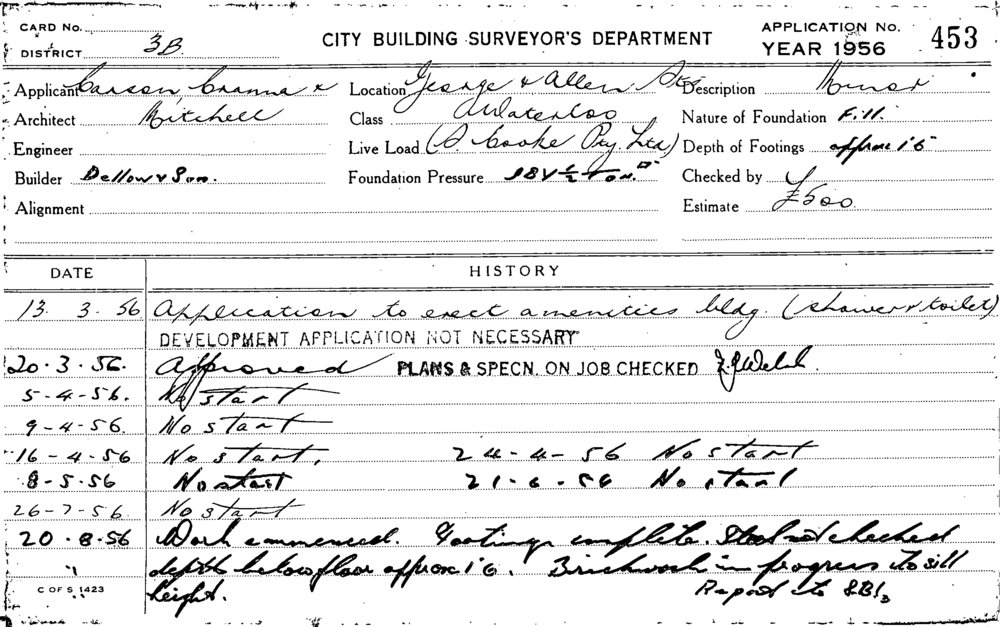 CARD No.
DISTRICT 3B
CITY BUILDING SURVEYOR'S DEPARTMENT
APPLICATION No.
YEAR 1956
453
Applicant Carson, Cranna &
Location George & Allen Sts
Description Minor
Architect Mitchell
Class Waterloo
Nature of Foundation Fill
Engineer
Live Load (A Cooke Pty. Ltd)
Depth of Footings approx 1'6"
Builder Dellow & Son.
Foundation Pressure
Checked by
Alignment
Estimate £500
DATE
HISTORY
13. 3. 56 Application to erect amenities bldg. (shower & toilet)
DEVELOPMENT APPLICATION NOT NECESSARY
20.3.56. Approved PLANS & SPECN. ON JOB CHECKED
5-4-56. No start
9-4-56. No start
16-4-56 No start. 24-4-56 No start
8-5-56 No start 21-6-56 No start
26-7-56. No start
20.8.56 Work commenced. Footings complete. Steel not checked
depth below floor approx 1'6. Brickwork in progress to sill
height. Report to
C OF S 1423